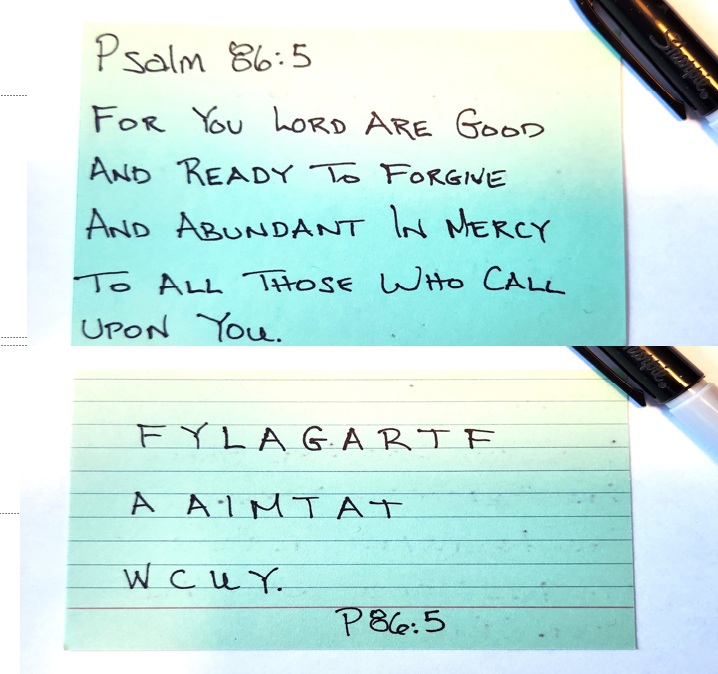 Psalm 86:5
Sharpie
FOR YOU LORD ARE GOOD
AND READY TO FORGIVE
AND ABUNDANT IN MERCY
TO ALL THOSE WHO CALL
UPON YOU.
Sharpie
F Y L A G A R T F
A A I M T A T
W C U Y.
P86:5